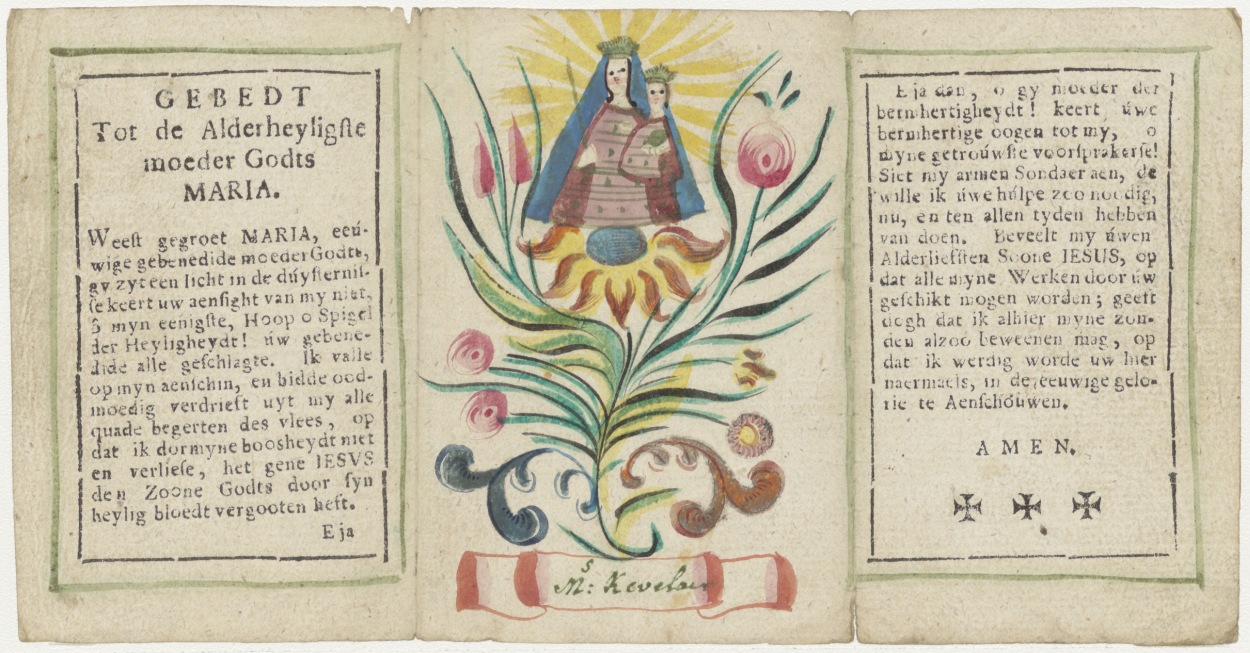 GEBEDT
Tot de Alderheyligste
moeder Godts
MARIA.
Weest gegroet MARIA, eeú-
wige gebenedide moeder Godts,
gy zyt een licht in de dúysternis-
se keert uw aensight van my niet,
ô myn eenigste, Hoop o Spigel
der Heyligheydt! úw gebene-
dide alle geschlagte. Ik valle
op myn aenschin, en bidde ood-
moedig verdriest uyt my alle
quade begerten des vlees, op
dat ik dormyne boosheydt niet
en verliese, het gene IESVS
den Zoone Godts door syn
heylig bloedt vergooten heft.
Eja
S
M: Kevelaer
Eja dan, o gy moeder der
bermhertigheydt! keert úwe
bermhertige oogen tot my, o
myne getroúwste voorsprakerse!
Siet my armen Sondaer aen, de
wille ik úwe húlpe zoo noodig,
nu, en ten allen tyden hebben
van doen. Beveelt my úwen
Alderliefsten Soone IESUS, op
dat alle myne Werken door úw
geschikt mogen worden; geeft
dogh dat ik alhier myne zon-
den alzoo beweenen mag, op
dat ik werdig worde uw hier
naermaels, in de eeuwige gelo-
rie te Aenschoúwen.
AMEN.